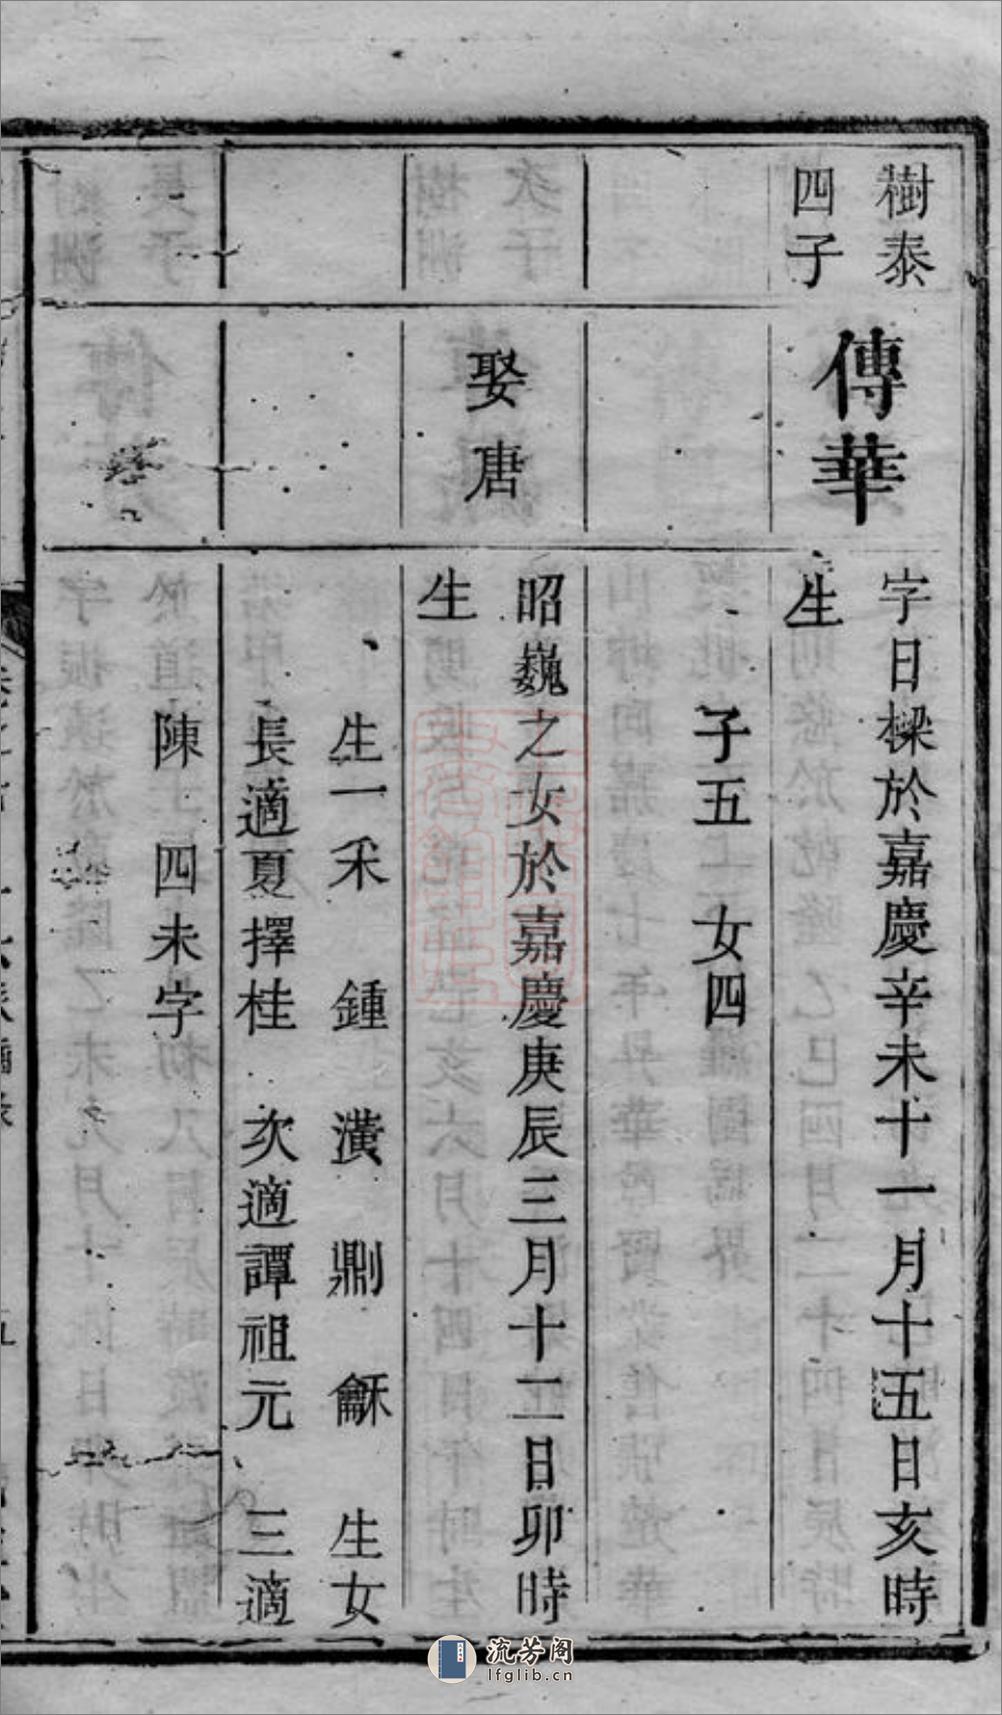 樹泰
四子
傳華
字日樑於嘉慶辛未十一月十五日亥時
生
子五 女四
娶唐
昭巍之女於嘉慶庚辰三月十二日卯時
生
生一禾 鍾 潢 鼎 龢 生女
長適夏擇桂 次適譚祖元 三適
陳 四未字
流芳阁
lfglib.cn